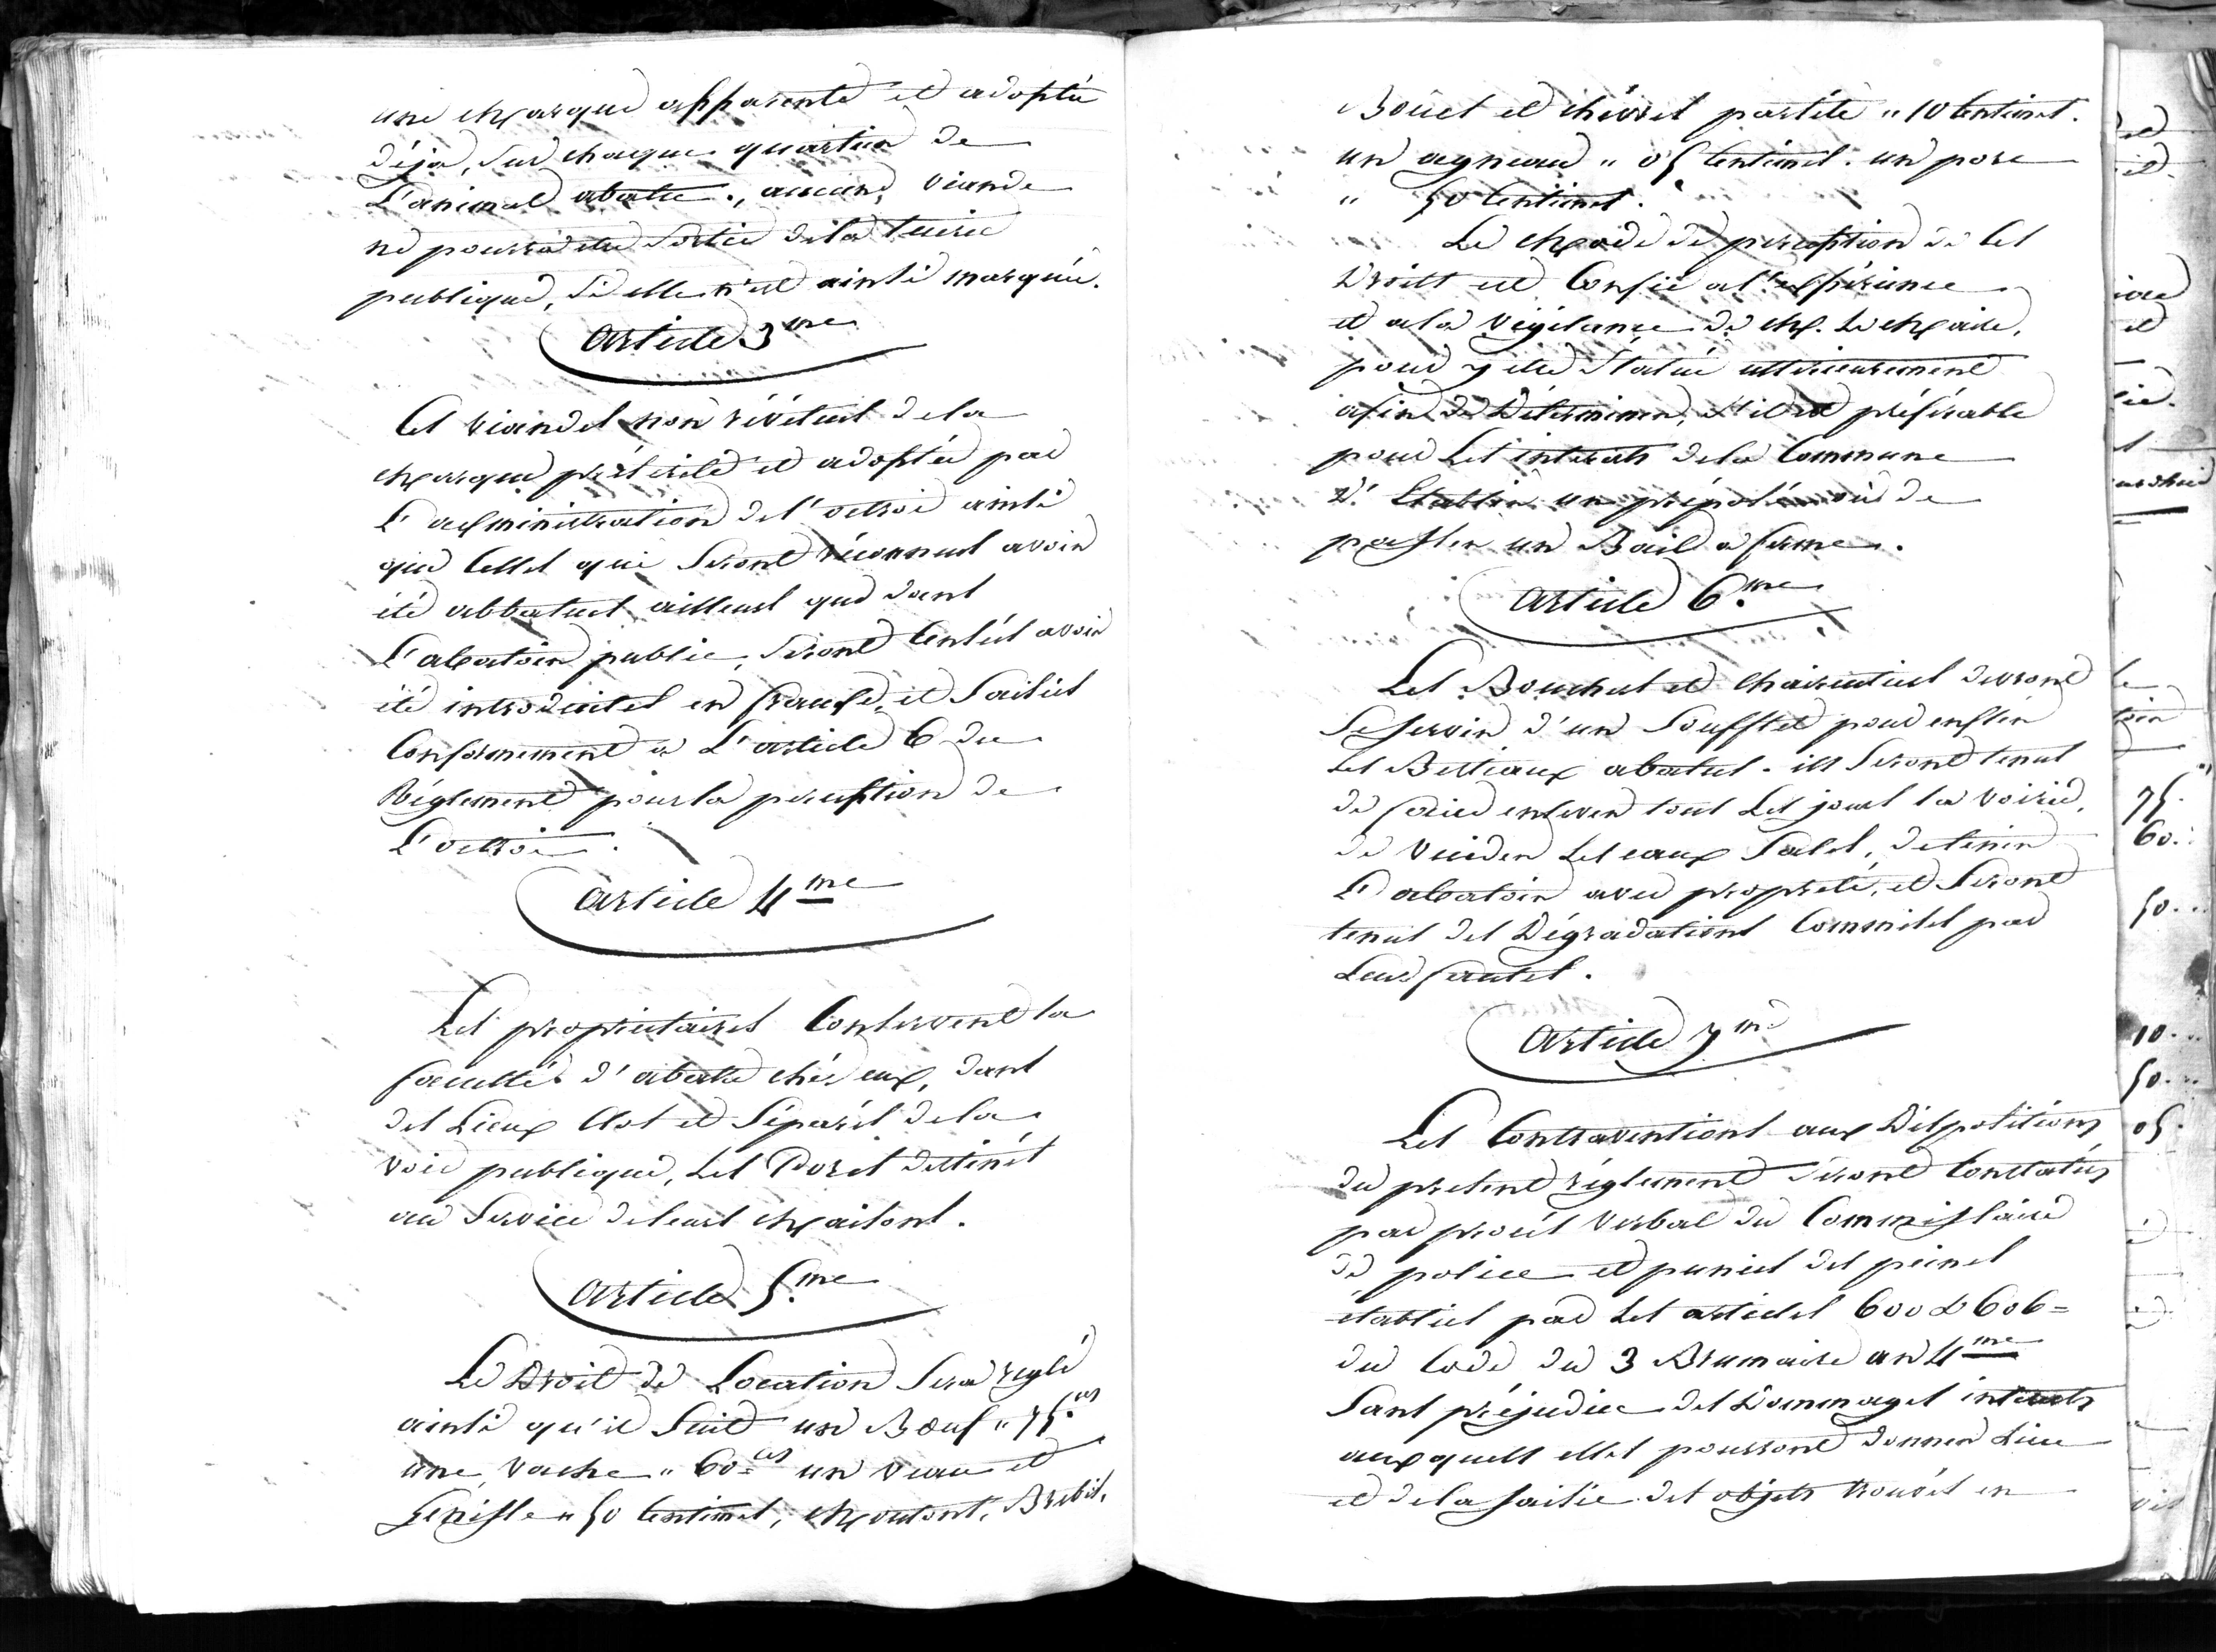 une marque apparente et adoptée
déja, sur chaque quartier de
L'animal abattu., aucune viande
ne pourra etre sortie de la tuerie
publique, si elle n'est ainsi marquée.
Article 3me
Les viandes non révétues de la
marque précitée et adoptée par
L'administration de l'octroi ainsi
que Celles qui seront réconnues avoir
été abbatues ailleurs que dans
L'abatoir public, seront Censées avoir
été introduites en fraude, et Saisies
Conformement à L'article 6 du
Réglement pour la perception de
L'octroi.
Article 4me
Les propriétaires Conservent la
faculté d'abattre chés eux, dans
des Lieux Clos et Séparés de la
voie publique, Les Porcs destinés
au Service de leurs Maisons.
Article 5.me
Le Droit de Location sera reglé
ainsi qu'il Suit un Bœuf " 75.es
une Vache " 60=es un veau et
Génisse " 50 Centimes, Moutons, Brebis,
Boucs et chévres partête " 10 Centimes.
un agneau " 05 Centimes. un porc
" 50 Centimes.
Le Mode de perception de Ces
Droits est Confié a l'expérience
et a la vigilance de M. Le Maire,
pour y etre Statué ultérieurement
afin de Déterminer, s'il est préférable
pour Les intérets de la Commune
d'Etablir un préposé ou de
passer un Bail a ferme.
Article 6.me
Les Bouchers et Chaircutiers devront
se servir d'un Soufflet pour enfler
Les Bestiaux abatus. ils Seront tenus
de faire enlever tous Les jours la voirie,
de vuider Les eaux Sales, de tenir
L'abatoir avec propreté, et Seront
tenus des Dégradations Commises par
Leurs fautes.
Article 7me
Les Contraventions aux Dispositions
du présent réglement séront Constatées
par procés verbal du Commissaire
de police et punies des peines
établies par Les articles 600 & 606=
du Code du 3 Brumaire an 4me
Sans préjudice des Dommages intérets
auxquels elles pourront donner Lieu
et de la saisie des objets trouvés en
75.
60.
50..
10..
50..
05.